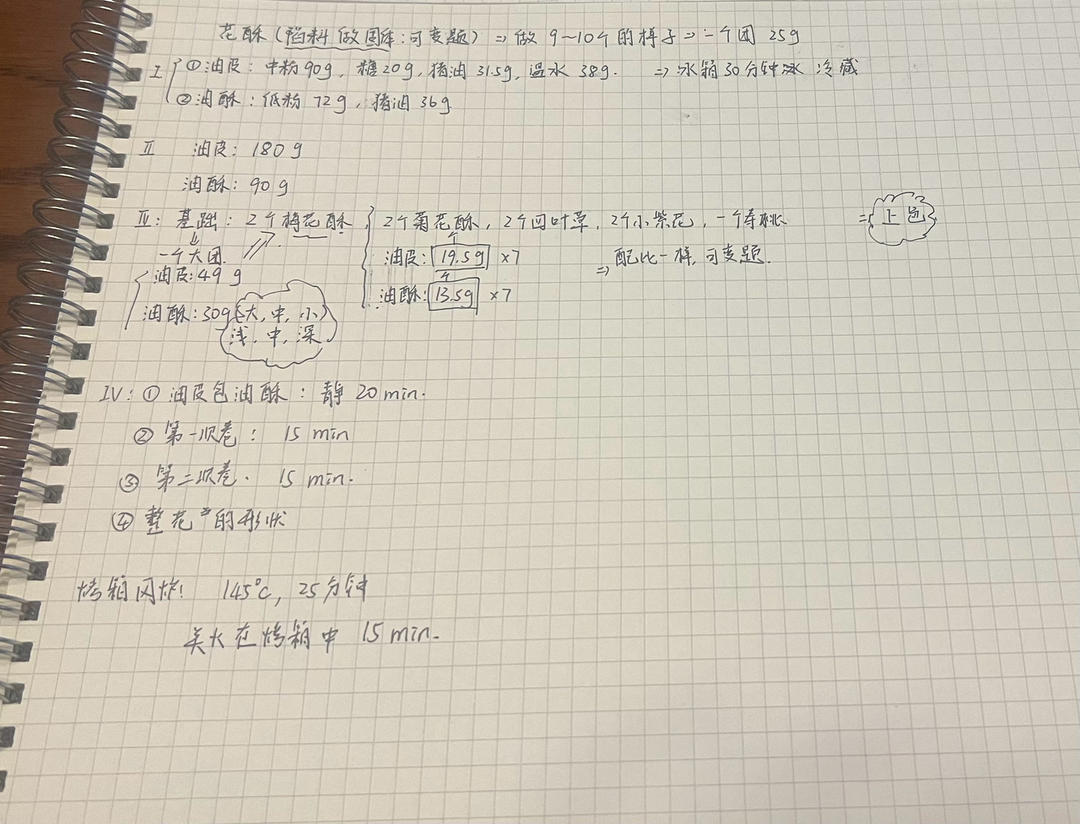 花酥(馅料做固体:可变题) ⇒ 做9~10个的样子 ⇒ 一个团 25g
I ①油皮: 中粉90g, 糖20g, 猪油31.5g, 温水38g. ⇒ 冰箱30分钟冰 冷藏
②油酥: 低粉72g, 猪油36g
II 油皮: 180g
油酥: 90g
III: 基础: 2个梅花酥 2个菊花酥, 2个四叶草, 2个小紫花, 一个寿桃 ⇒
一个大团. 油皮: 个 19.5g ×7 ⇒ 配比一样, 可变题.
油皮:49g 油酥: 个 13.5g ×7
油酥:30g (大, 中, 小)
浅, 中, 深
IV: ① 油皮包油酥: 静 20 min.
② 第一次卷: 15 min
③ 第二次卷. 15 min.
④ 整花的形状
烤箱 145°C, 25分钟
关火在烤箱中 15 min.